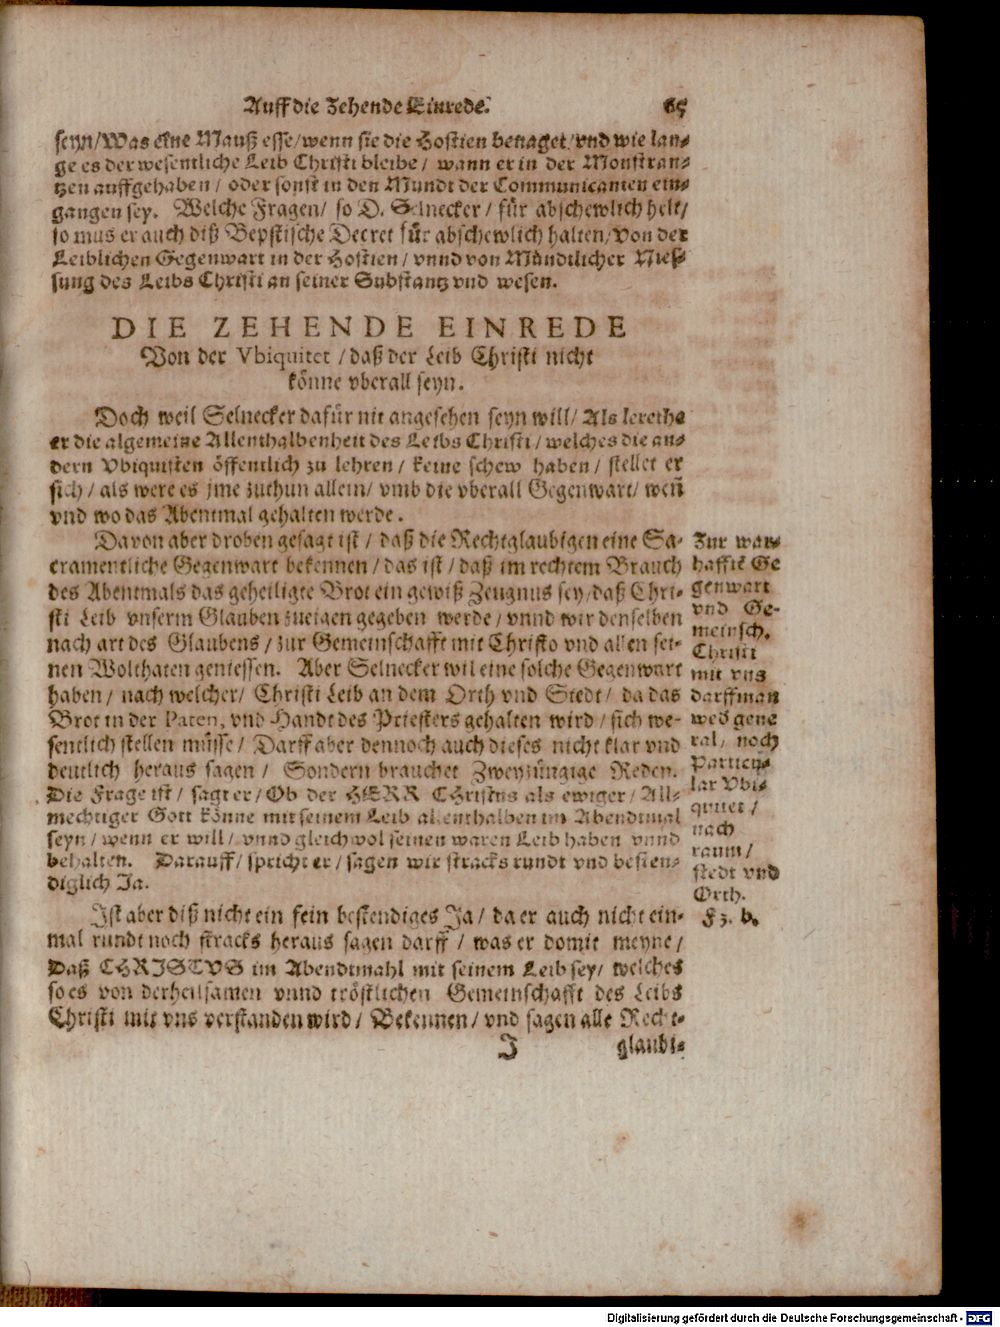 Auff die Zehende Einrede. 65
seyn/Was eine Mauß esse/wenn sie die Hostien benaget/vnd wie lan-
ge es der wesentliche Leib Christi bleibe/ wann er in der Monstran-
tzen auffgehaben/ oder sonst in den Mundt der Communicanten ein-
gangen sey. Welche Fragen/ so D. Selnecker/ für abschewlich helt/
so mus er auch diß Bepstische Decret für abschewlich halten/von der
Leiblichen Gegenwart in der Hostien/ vnnd von Mündtlicher Nies-
sung des Leibs Christi an seiner Substantz vnd wesen.
DIE ZEHENDE EINREDE
Von der Vbiquitet/daß der Leib Christi nicht
könne vberall seyn.
Doch weil Selnecker dafür nit angesehen seyn will/ Als lerethe
er die algemeine Allenthalbenheit des Leibs Christi/ welches die an-
dern Vbiquisten öffentlich zu lehren/ keine schew haben/ stellet er
sich/ als were es jme zuthun allein/ vmb die vberall Gegenwart/ weñ
vnd wo das Abentmal gehalten werde.
Davon aber droben gesagt ist/ daß die Rechtglaubigen eine Sa-
cramentliche Gegenwart bekennen/das ist/daß im rechtem Brauch
des Abentmals das geheiligte Brot ein gewiß Zeugnus sey/daß Chri-
sti Leib vnserm Glauben zueigen gegeben werde/ vnnd wir denselben
nach art des Glaubens/ zur Gemeinschafft mit Christo vnd allen sei-
nen Wolthaten geniessen. Aber Selnecker wil eine solche Gegenwart
haben/ nach welcher/ Christi Leib an dem Orth vnd Stedt/ da das
Brot in der Paten, vnd Handt des Priesters gehalten wird/ sich we-
sentlich stellen müsse/ Darff aber dennoch auch dieses nicht klar vnd
deutlich heraus sagen/ Sondern brauchet Zweyzüngige Reden.
Die Frage ist/ sagt er/Ob der HERR CHristus als ewiger/ All-
mechtiger Gott könne mit seinem Leib allenthalben im Abendtmal
seyn/wenn er will/ vnnd gleichwol seinen waren Leib haben vnnd
behalten. Darauff/ spricht er/ sagen wir stracks rundt vnd besten-
diglich Ja.
Zur war-
hafftē Ge
genwart
vnd Ge-
meinsch.
Christi
mit vns
darffman
wed gene
ral, noch
Particu-
lar Vbi-
quitet/
nach
raum/
stedt vnd
Orth.
F 3. b.
Ist aber diß nicht ein fein bestendiges Ja/ da er auch nicht ein-
mal rundt noch stracks heraus sagen darff/ was er domit meyne/
Daß CHRISTVS im Abendtmahl mit seinem Leib sey/ welches
so es von der heilsamen vnnd tröstlichen Gemeinschafft des Leibs
Christi mit vns verstanden wird/ Bekennen/ vnd sagen alle Recht-
J glaubi-
Digitalisierung gefördert durch die Deutsche Forschungsgemeinschaft - DFG